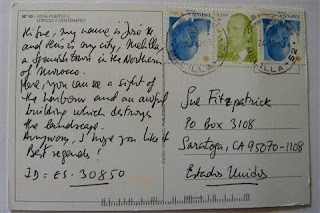 Nº 10 - VISTA PUERTO Y
EDIFICIO V CENTENARIO
Hi Sue, my name is José
and this is my city, Melilla,
a Spanish town in the Northern
of Morocco.
Here, you can see a sight of
the harbour and an awful
building which destroys
the landscape.
Anyway, I hope you like it
Best regards!
ID = ES-30850
ESPAÑA
ESPAÑA
Sue Fitzpatrick
PO Box 3108
Saratoga, CA 95070-1108
Estados Unidos